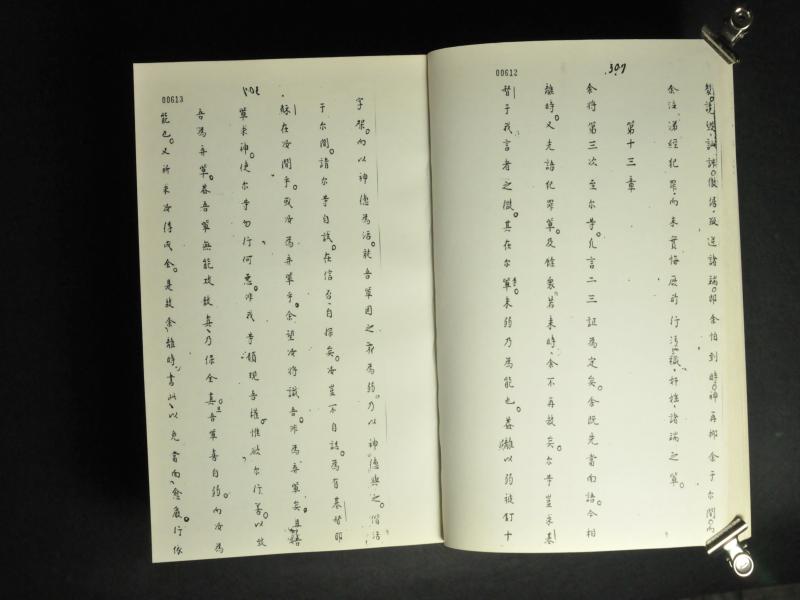 00612
307
余泣濡經犯罪、而未實悔厥所行汚穢、奸撓、諸端之輩。
第十三章
余將第三次至尔等。凡言二三証為定矣。余既先當面語。今相
離時、又先語犯罪輩、及餘衆、若来時、余不再赦矣。尔等豈求基
督于我言者之徵。其在尔等未弱乃為能也。蓋雖以弱被釘十
00613
字架。而以神德為活。就吾輩因之亦為弱。乃以神德與之偕活
于尔間。請尔等自試。在信否、自探矣。尔豈不自認。為有基督耶
穌在尔間乎。或尔為弃輩乎。余望尔將識吾非為弃輩矣。且
畢求神、使尔等勿行何惡。非我等顯現吾權、惟欲尔行善。以致
吾為弃輩。蓋吾輩無能攻敵真、乃保全真。吾輩喜自弱、而尔為
能也。又祈求尔得成全。是故余離時、書此、以免當面、愈嚴。行依